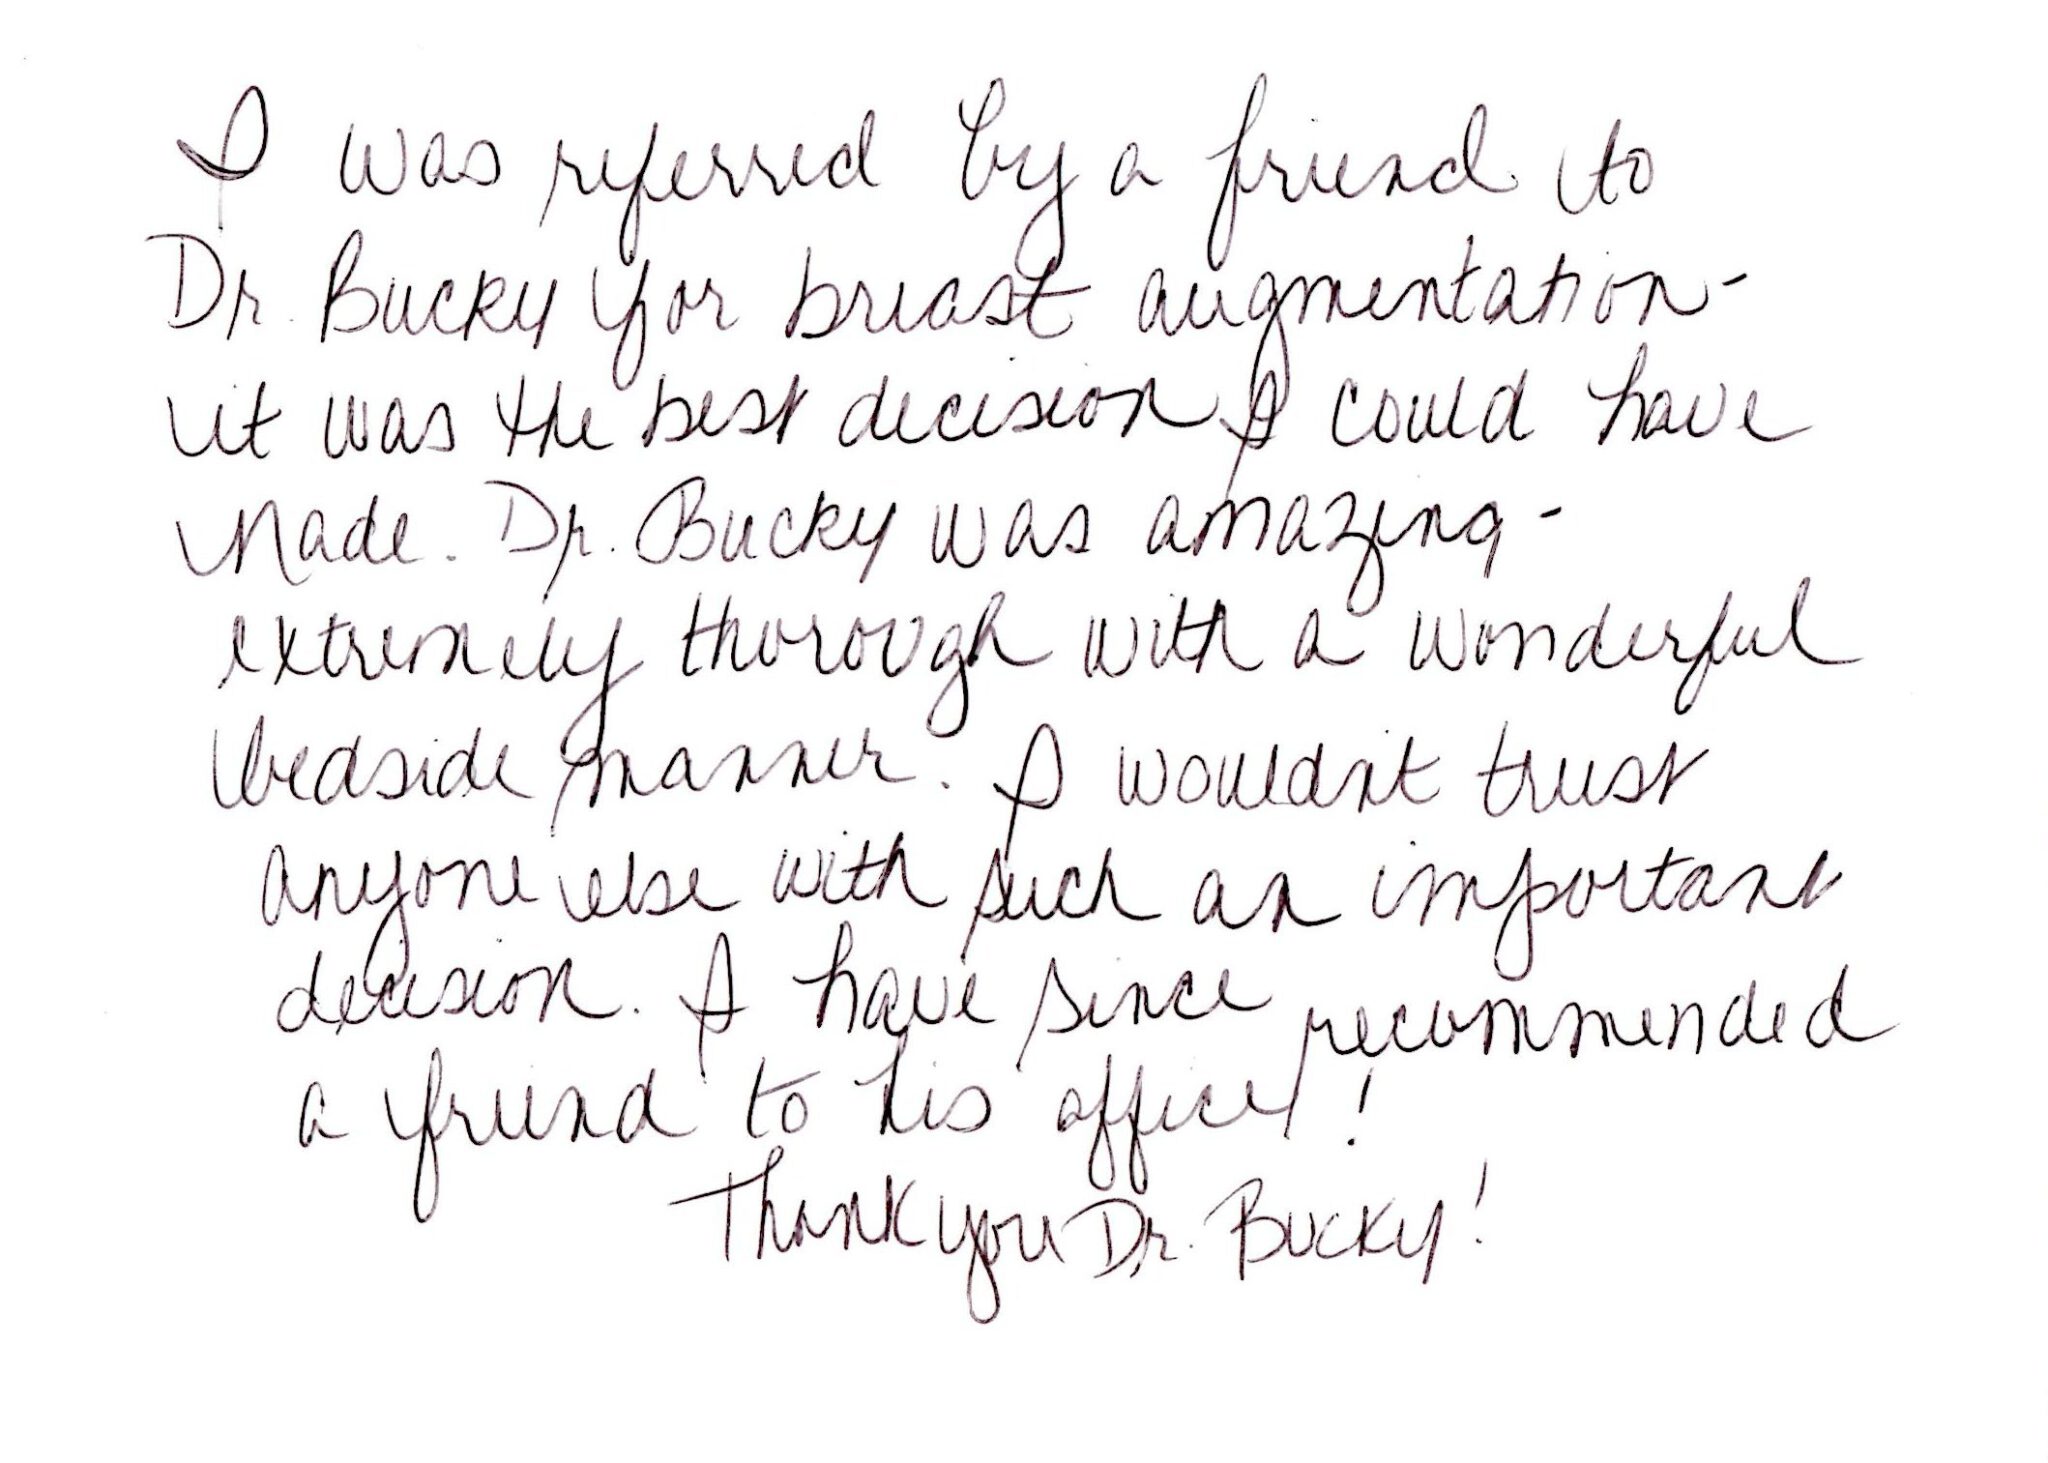 I was referred by a friend to
Dr. Bucky for breast augmentation-
it was the best decision I could have
made. Dr. Bucky was amazing-
extremely thorough with a wonderful
bedside manner. I wouldn't trust
anyone else with such an important
decision. I have since recommended
a friend to his office!
Thank you Dr. Bucky!